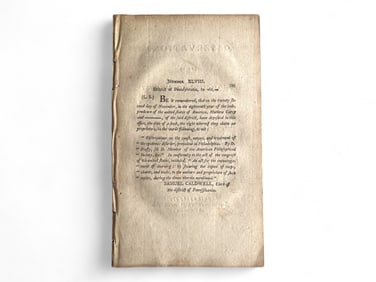 NUMBER XLVIII.
District of Pennsylvania, to wit,
(L. S.) BE it remembered, that on the twenty
second day of November, in the eighteenth year of the inde-
pendence of the united states of America,
of the said district, have deposited in this
office, the title of a book, the right whereof they claim as
proprietors, in the words following, to wit:
" Observations on the cause, nature, and treatment of
" the epidemic disorder, prevalent in Philadelphia. By D.
" M. D. Member of the American Philosophical
" Society, &c." In conformity to the act of the congress
of the united states, intituled, " An act for the encourage-
" ment of learning; by securing the copies of maps,
" charts, and books, to the authors and proprietors of such
" copies, during the times therein mentioned."
SAMUEL CALDWELL, Clerk of
the district of Pennsylvania.